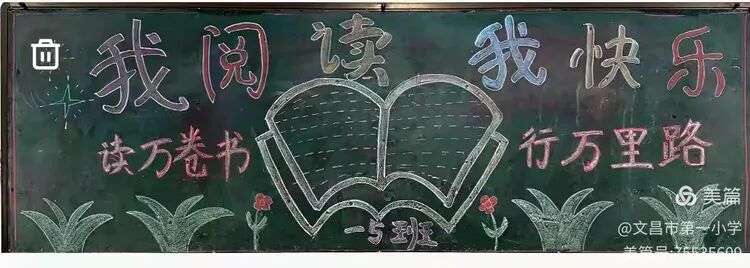 我阅读 我快乐
读万卷书
行万里路
一5班
美篇
@文昌市第一小学
美篇号:75535609